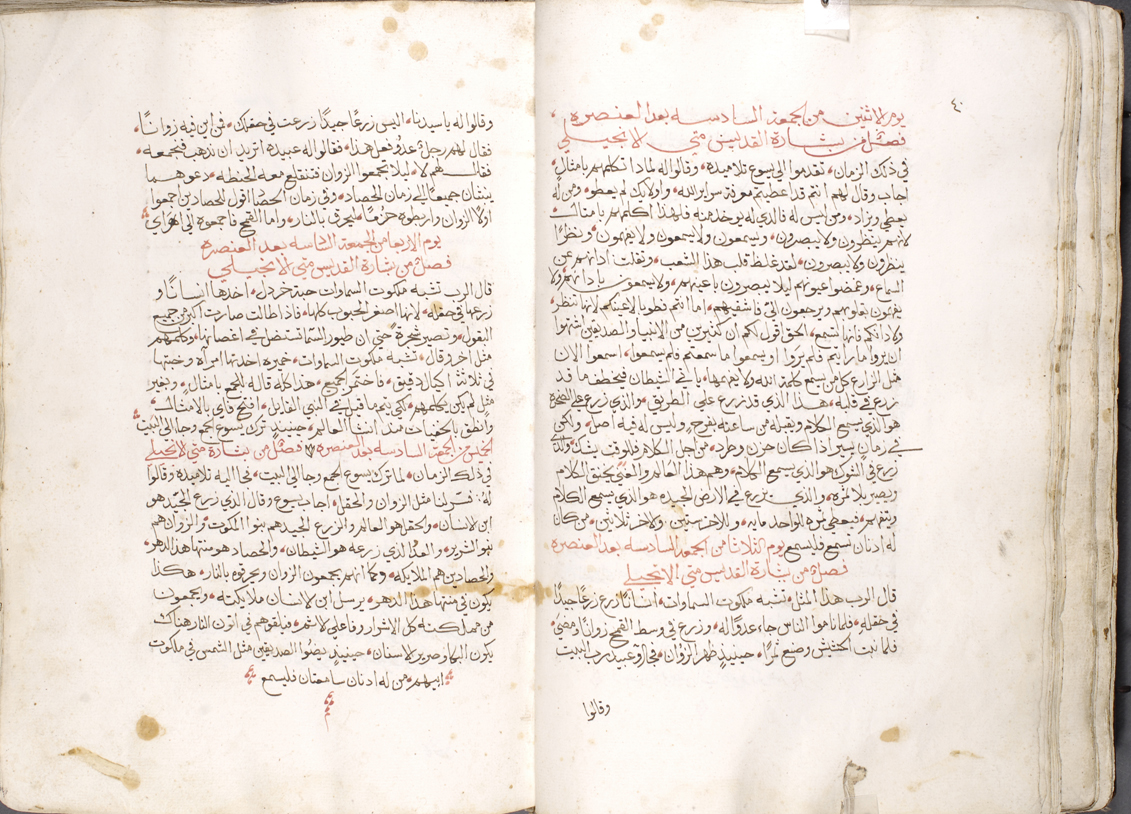 ٤٠
يوم الاثنين من الجمعه السادسه بعد العنصره
فصل من بشارة القديس متي الانجيلي
في ذلك الزمان تقدموا الى يسوع تلاميذه وقالوا له لماذا تكلمهم بامثال
اجاب وقال لهم انتم قد اعطيتم معرفة سراير الله واولايك لم يعطو ومن له
يعطي ويزاد ومن ليس له فالذي له يوخذ منه فلهذا اكلمهم بامثال
لانهم ينظرون ولا يبصرون ويسمعون ولا يسمعون ولا يفهمون ونظرًا
ينظرون ولا يبصرون لقد غلظ قلب هذا الشعب وثقلت اذانهم عن
السماع وغمضوا عيونهم ليلا يبصرون باعينهم ولا يسمعون باذانهم ولا
يفهمون بقلوبهم ويرجعون الىّ فاشفيهم اما انتم فطوبا لاعينكم لانها تنظر
ولاذانكم لانها تسمع الحق اقول لكم ان كثيرين من الانبيا والصديقين اشتهوا
ان يروا ما رايتم فلم يروا او يسمعوا ما سمعتم فلم يسمعوا اسمعوا الان
مثل الزارع كل من يسمع كلمة الله ولا يفهمها ياتي الشيطان فيخطف ما قد
زرع في قلبه هذا الذي قد زرع علي الطريق والذي زرع علي الصخرة
هو الذي يسمع الكلام ويقبله من ساعته بفرح وليس له فيه اصل ولكن
في زمان يسير اذا كان حزن وطرد من اجل الكلام فللوقت يشك والذي
زرع في الشوك هو الذي يسمع الكلام وهم هذا العالم والغني يخنق الكلام
ويصير بلا ثمره والذي زرع في الارض الجيده هو الذي يسمع الكلام
ويتفهم فيعطي ثمره الواحد مايه وللاخر ستين ولاخر ثلاثين من كان
له اذنان تسمع فليسمع يوم الثلاثا من الجمعه السادسه بعد العنصره
فصل من بشارة القديس متي الانجيلي
قال الرب هذا المثل تشبه ملكوت السماوات انسانًا زرع زرعًا جيدًا
في حقله فلما ناموا الناس جاء عدوًا له وزرع في وسط القمح زوانًا ومضى
فلما نبت الحشيش وصنع ثمرًا حينيذٍ ظهر الزوان فجاوا عبيد رب البيت
وقالوا
وقالوا له يا سيدنا اليس زرعًا جيدًا زرعت في حقلك فمن اين فيه زوانًا
فقال لهم رجل عدو فعل هذا فقالوا له عبيده اتريد ان نذهب فنجمعه
فقال لهم لا ليلا تجمعوا الزوان فتنقلع معه الحنطه دعوهما
ينبتان جميعًا الى زمان الحصاد وفي زمان الحصاد اقول للحصادين اجمعوا
اولًا الزوان واربطوه حزمًا ليحرق بالنار واما القمح فاجمعوه الى اهراى
يوم الاربعا من الجمعه السادسه بعد العنصره
فصل من بشارة القديس متي الانجيلي
قال الرب تشبه ملكوت السماوات حبة خردل اخذها انسانًا و
زرعها في حقله لانها اصغر الحبوب كلها فاذا طالت صارت اكبر من جميع
البقول وتصير شجرة حتى ان طيور السما تستظل في اغصانها وكلمهم
مثل اخر قال تشبه ملكوت السماوات خميره اخذتها امراه وخبتها
في ثلاثة اكيال دقيق فاختمر الجميع هذا كله قاله للجمع بامثال وبغير
مثل لم يكن يكلمهم لكي يتم ما قيل في النبي القايل افتح فاي بالامثال
وانطق بالخفيات منذ انشا العالم حينيذٍ ترك يسوع الجمع وجا الى البيت
الخميس من الجمعه السادسه بعد العنصره فصل من بشارة متي الانجيلي
في ذلك الزمان لما ترك يسوع الجمع وجا الى البيت فجا اليه تلاميذه وقالوا
له فسر لنا مثل الزوان والحقل اجاب يسوع وقال الذي زرع الجيد هو
ابن الانسان والحقل هو العالم والزرع الجيد هم بنوا الملكوت والزوان هم
بنو الشرير والعدو الذي زرعه هو الشيطان والحصاد هو منتها هذا الدهر
والحصادين هم الملايكه وكما انهم يجمعون الزوان ويحرقوه بالنار هكذا
يكون في منتها هذا الدهر يرسل ابن الانسان ملايكته ويجمعون
من مملكته كل الاشرار وفاعلي الاثم فيلقوهم في اتون النار هناك
يكون البكا وصرير الاسنان حينيذٍ يضوا الصديقين مثل الشمس في ملكوت
ابيهم من له اذنان سامعتان فليسمع